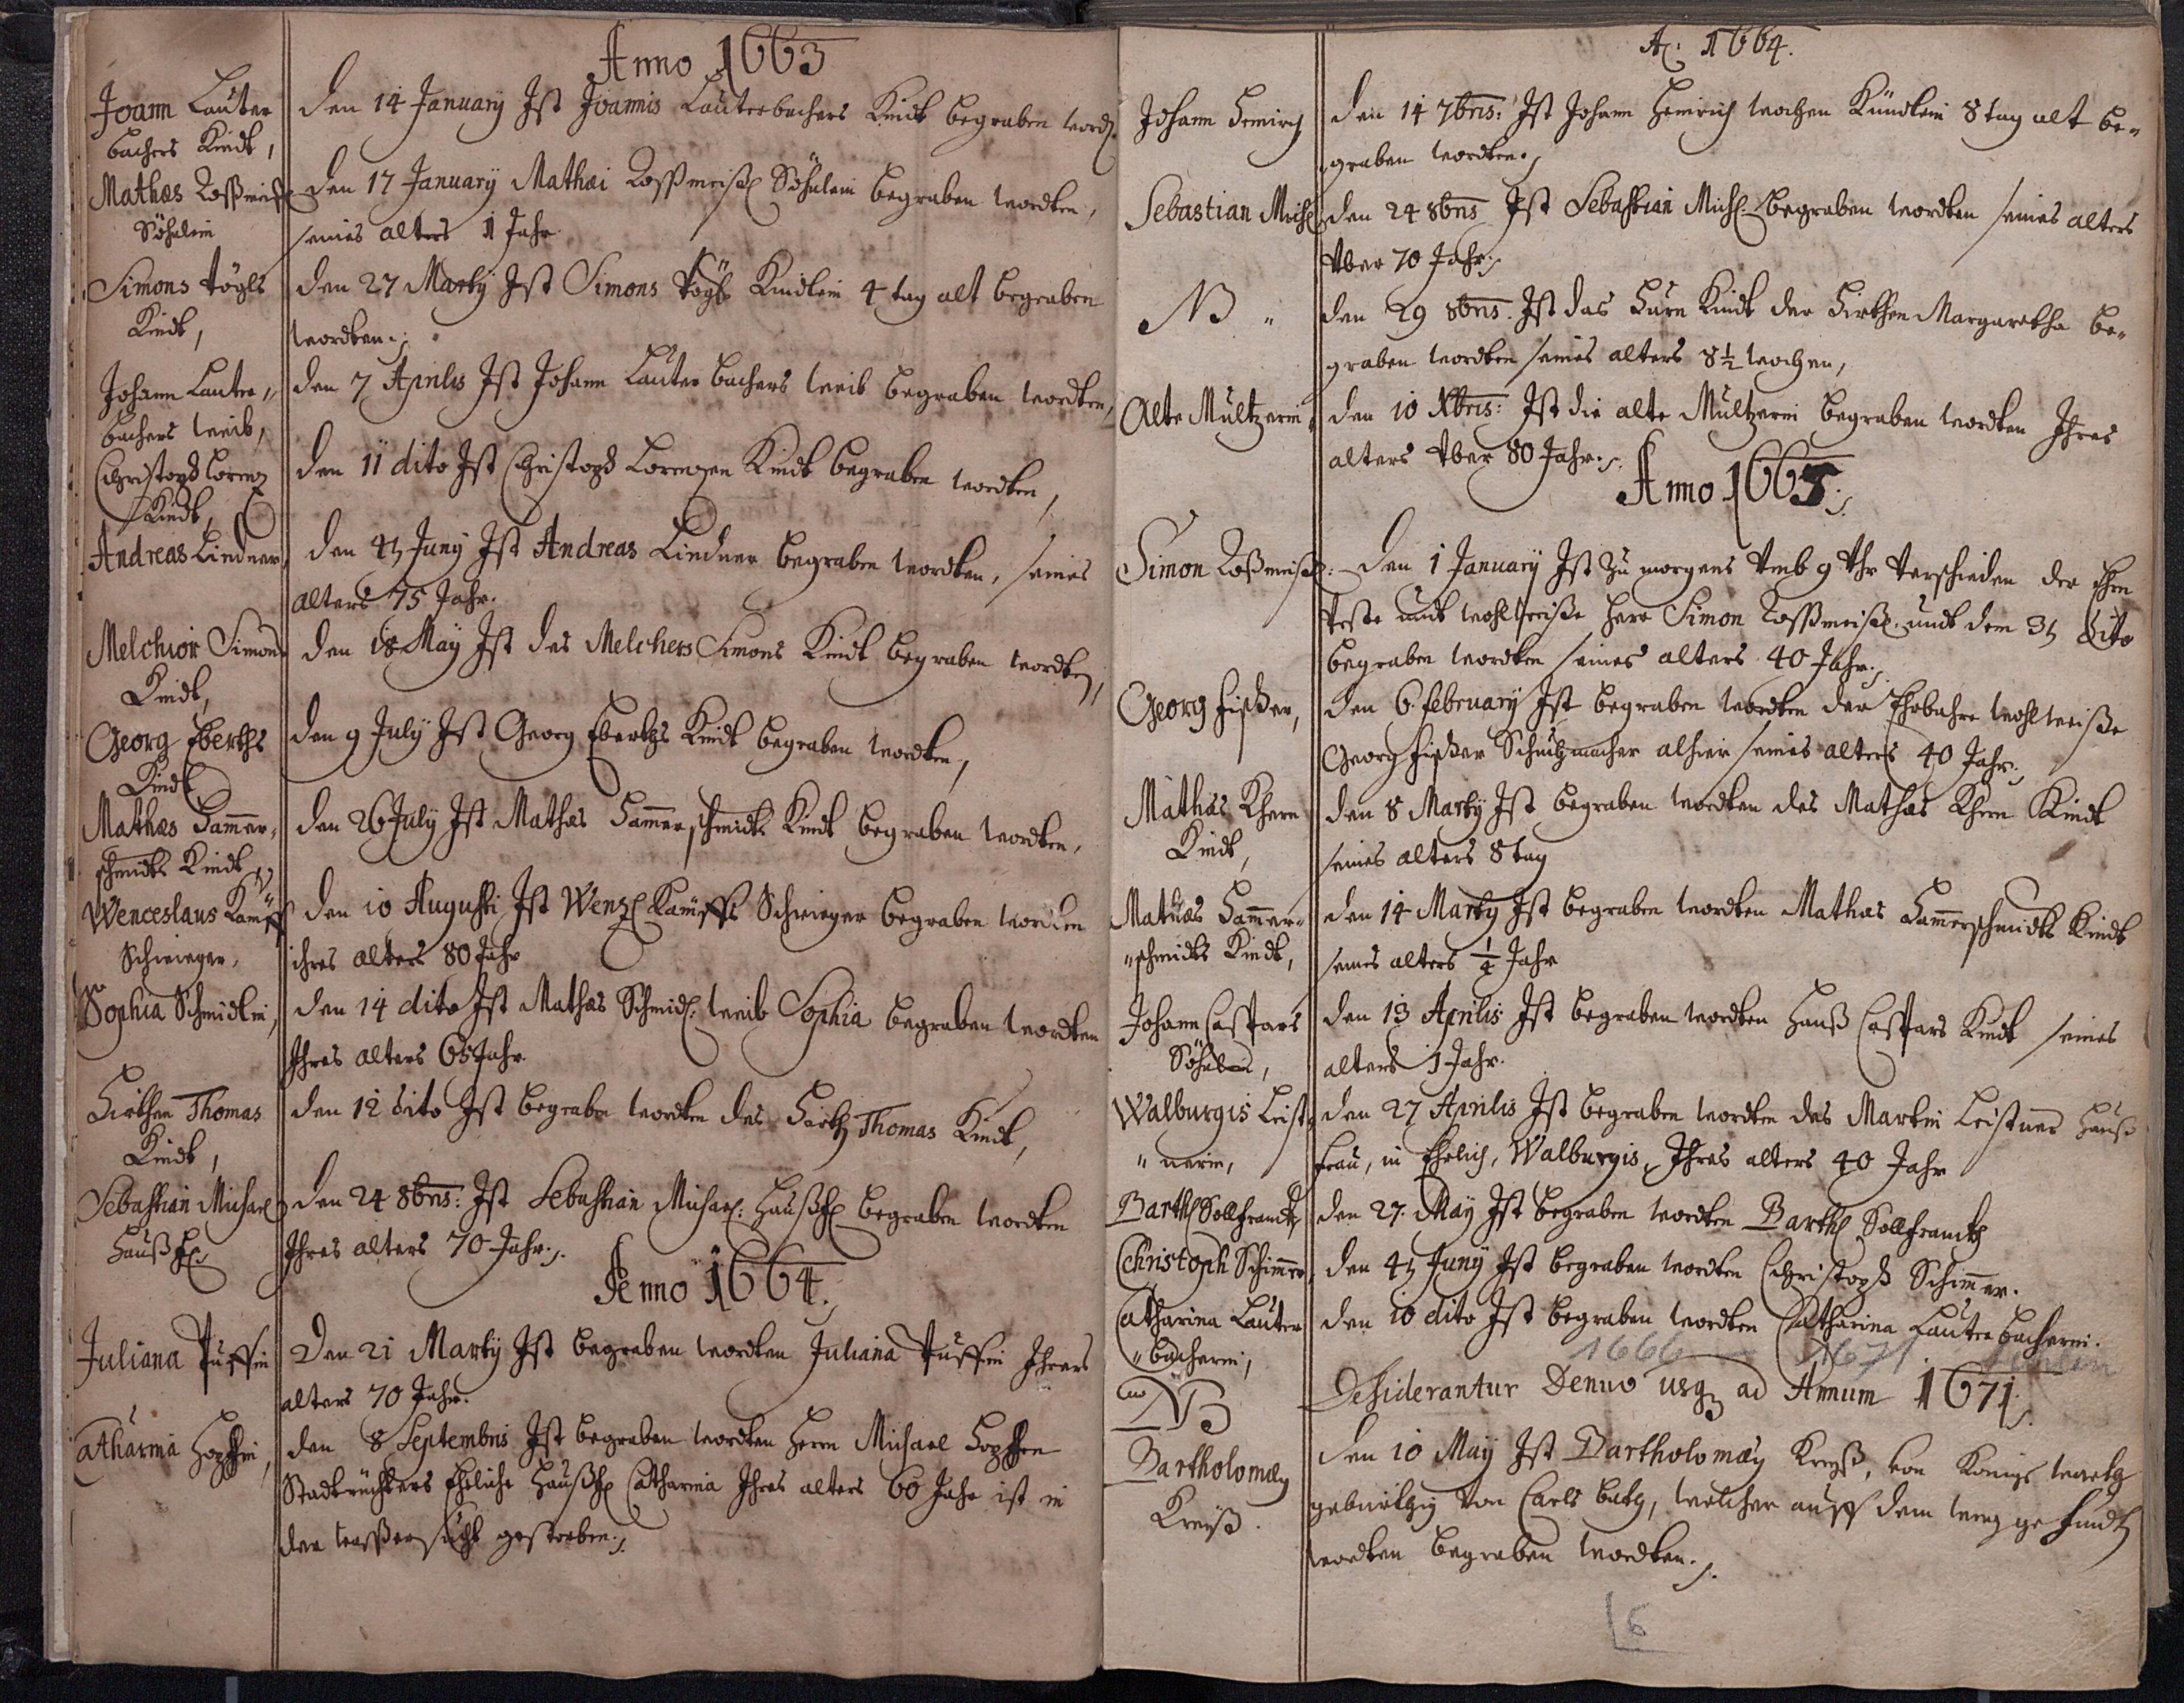 Anno 1663
Joann Lauter
bachers Kindt,
den 14 January Ist Joannis Lauterbachers Kindt begraben word.
Mathæs Roßmeiß
Söhnlein
den 17 January Mathæi Roßmeißl Söhnlein begraben wordten,
seines alters 1 Jahr
Simons Vögls
Kindt,
den 27 Marty Ist Simons Vögls Kindlein 4 tag alt begraben
wordten.
Johann Lauter„
bachers weib,
den 7 Aprilis Ist Johann Lauterbachers weib begraben wordten,
Christoph Lorenz
Kindt,
den 11 dito Ist Christoph Lorenzen Kindt begraben wordten,
Andreas Lindner,
den 4t Juny Ist Andreas Lindner begraben wordten, seines
alters 75 Jahr.
Melchior Simons
Kindt,
den 18 May Ist des Melchers Simons Kindt begraben wordten,
Georg Eberths
Kindt
den 9 July Ist Georg Eberths Kindt begraben wordten,
Mathæs Hammer„
schmidts Kindt
den 26 July Ist Mathæs Hammerschmidts Kindt begraben wordten,
Wenceslaus Kämpff
Schwieger,
den 10 Augusti Ist Wenzl Kämpffs Schwieger begraben wordten
ihres alters 80 Jahr
Sophia Schmidlin,
den 14 dito Ist Mathæs Schmidl: weib Sophia begraben wordten
Ihres alters 65 Jahr
Hirthen Thomas
Kindt,
den 12 dito Ist begraben wordten des Hirth Thomas Kindt,
Sebastian Michael
Haußfr.
den 24 8bris: Ist Sebastian Michael: Haußfr begraben wordten
Ihres alters 70 Jahr.
Anno 1664.
Juliana Puffin
Den 21 Marty Ist begraben wordten Juliana Puffin Ihrers
alters 70 Jahr.
Catharina Hopffin,
den 8 Septembris Ist begraben wordten Herrn Michael Hopffen
Stadtrichters Ehliche Haußfr Catharina Ihres alters 60 Jahr ist in
der wassersucht gestorben.
A: 1664.
Johann Heinrich
den 14 7bris: Ist Johann Heinrich wochen Kündlein 8 tag alt be„
graben wordten.
Sebastian Michl
den 24 8bris Ist Sebastian Michl: begraben wordten seines alters
Vber 70 Jahr.
NB „
den 29 8bris. Ist das Hurn Kindt der Hirthen Margaretha be„
graben wordten seines alters 8½ wochen,
Alte Mültzerin,
den 10 Xbris: Ist die alte Mültzerin begraben wordten Ihres
alters Vber 80 Jahr.
Anno 1665.
Simon Roßmeißl:
Den 1 January Ist Zu morgens Vmb 9 Vhr Verschieden der Ehrn
Veste undt wohlweiße Herr Simon Roßmeißl. undt dem 3t dito
begraben wordten seines alters 40 Jahr.
Georg Fischer,
den 6. february Ist begraben wordten der Ehrbahre wohlweiße
Georg Fischer Schuchmacher alhier seines alters 40 Jahr.
Mathæs Khern
Kindt,
den 8 Marty Ist begraben wordten des Mathæs Khern Kindt
seines alters 8 tag
Mathæs Hammer„
„schmidts Kindt,
den 14 Marty Ist begraben wordten Mathæs Hammerschmidts Kindt
seines alters ¼ Jahr
Johann Caspars
Söhnlein,
den 13 Aprilis Ist begraben wordten Hanß Caspars Kindt seines
alters 1 Jahr.
Walburgis Leist„
„nerin,
den 27 Aprilis Ist begraben wordten des Martin Leistner Hauß
frau, in Ehelich, Walburgis, Ihres alters 40 Jahr
Barthl Sollfranck,
den 27. May Ist begraben wordten Barthl Sollfranckh
Christoph Schimmer,
den 4t Juny Ist begraben wordten Christoph Schimmer.
Catharina Lauter
„bacherin,
den 10 dito Ist begraben wordten Catharina Lauterbacherin.
1666 – 1671
NB
Desiderantur Denuo usq ad Annum 1671.
Bartholomæy
Kreyß.
den 10 May Ist Bartholomæy Kreyß, von Königswarth
gebürthig von Carls bath, welcher auff dem weeg gefundt
wordten begraben wordten.
6